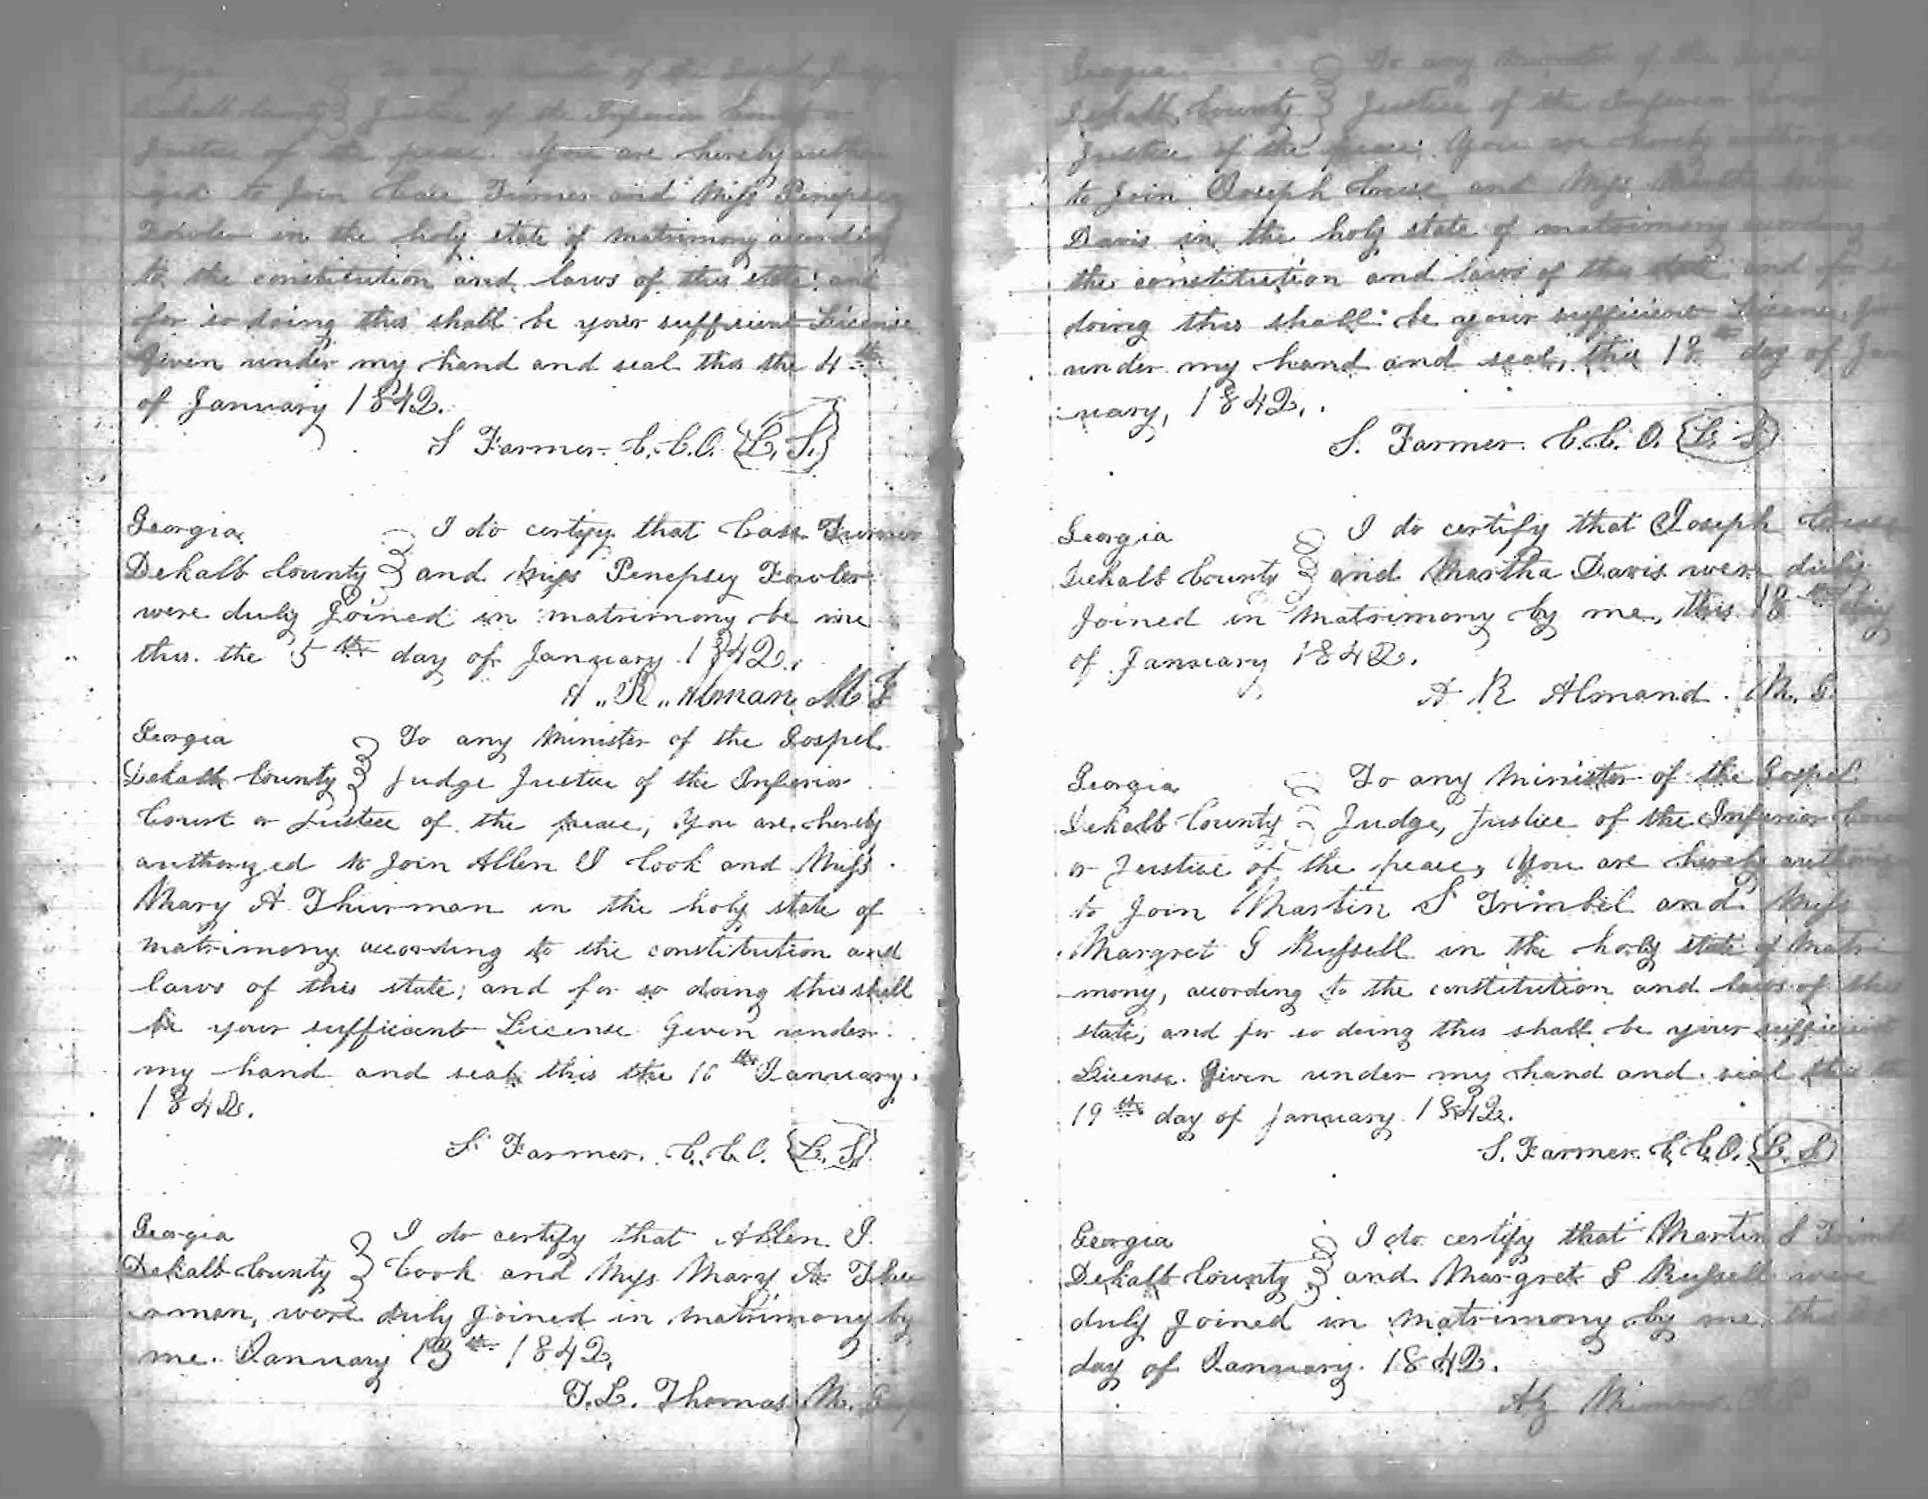 Georgia To any Minister of the Gospel Judge
Dekalb County Justice of the Inferior Court or
Justice of the peace. You are hereby author
ized to Join Case Turner and Miss Penepsey
Fowler in the holy state of matrimony according
to the constitution and laws of this state; and
for so doing this shall be your sufficient License
Given under my hand and seal this the 4th
of January 1842.
S Farmer. C.C.O. (L.S.)
Georgia I do certify that Case Turner
Dekalb County and Miss Penepsey Fowler
were duly Joined in matrimony be me
this the 5th day of January 1842.
A. R. Alman M G
Georgia To any Minister of the Gospel
Dekalb County Judge Justice of the Inferior
Court or Justice of the peace, You are hereby
authorized to Join Allen J Cook and Miss
Mary A Thurman in the holy state of
matrimony according to the constitution and
laws of this state; and for so doing this shall
be your sufficient License Given under
my hand and seal this the 10th January
1842.
S Farmer. C.C.O. (L.S.)
Georgia I do certify that Allen J.
Dekalb County Cook and Miss Mary A Thur
man, were duly Joined in matrimony by
me. January 13th 1842,
T.L. Thomas M. Gosp
Georgia To any Minister of the
Dekalb County Justice of the Inferior
Justice of the peace; You are hereby authorized
to Join Joseph and Miss Martha
Davis in the holy state of matrimony according
the constitution and laws of this state and for so
doing this shall be your sufficient License,
under my hand and seal, this 18th day of Jan
uary, 1842.
S. Farmer. C.C.O. (L.S)
Georgia I do certify that Joseph
Dekalb County and Martha Davis were duly
Joined in Matrimony by me, this 18th day
of January 1842.
A R Almand. M.G.
Georgia To any Minister of the Gospel
Dekalb County Judge, Justice of the Inferior Cou
or Justice of the peace, You are hereby authorize
to Join Martin S Trimbel and Miss
Margret G Russell in the holy state of Matri
mony, according to the constitution and laws of this
state, and for so doing this shall be your sufficient
License. Given under my hand and seal this the
19th day of January 1842.
S. Farmer. C.C.O. (L.S)
Georgia I do certify that Martin S Trimb
Dekalb County and Margret G Russell were
duly Joined in Matrimony by me the
day of January. 1842.